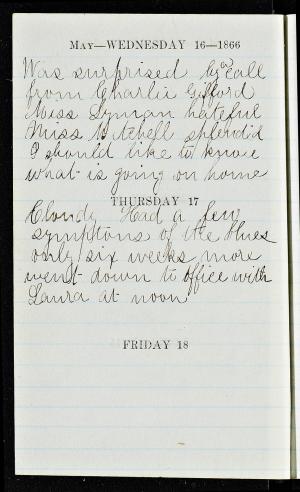 May—WEDNESDAY 16—1866
Was surprised by a call
from Charlie Gifford
Miss Lyman hateful
Miss Mitchell splendid
I should like to know
what is going on home
THURSDAY 17
Cloudy Had a few
symptons of the blues
only six weeks more
went down to office with
Laura at noon
FRIDAY 18